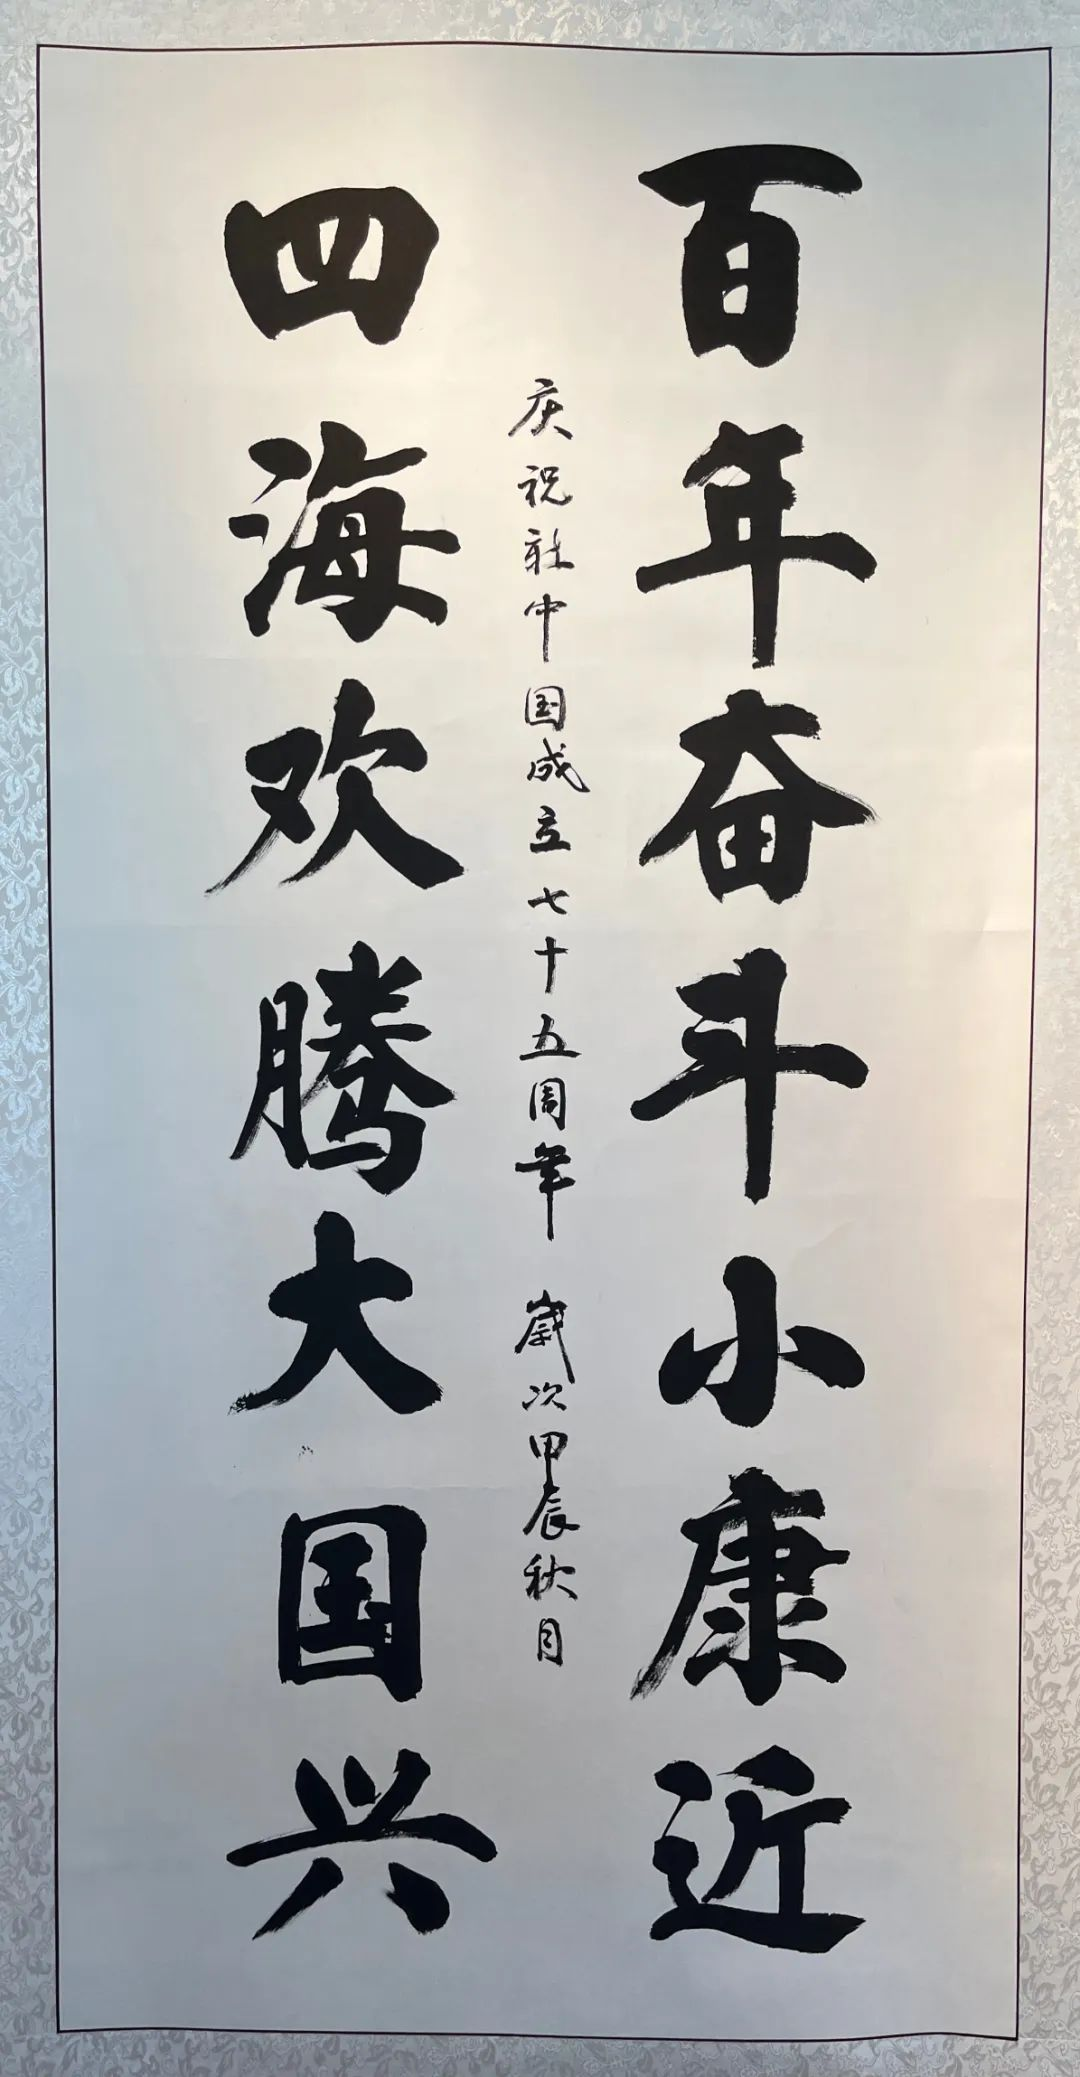 百年奋斗小康近
庆祝社中国成立七十五周年 岁次甲辰秋月
四海欢腾大国兴